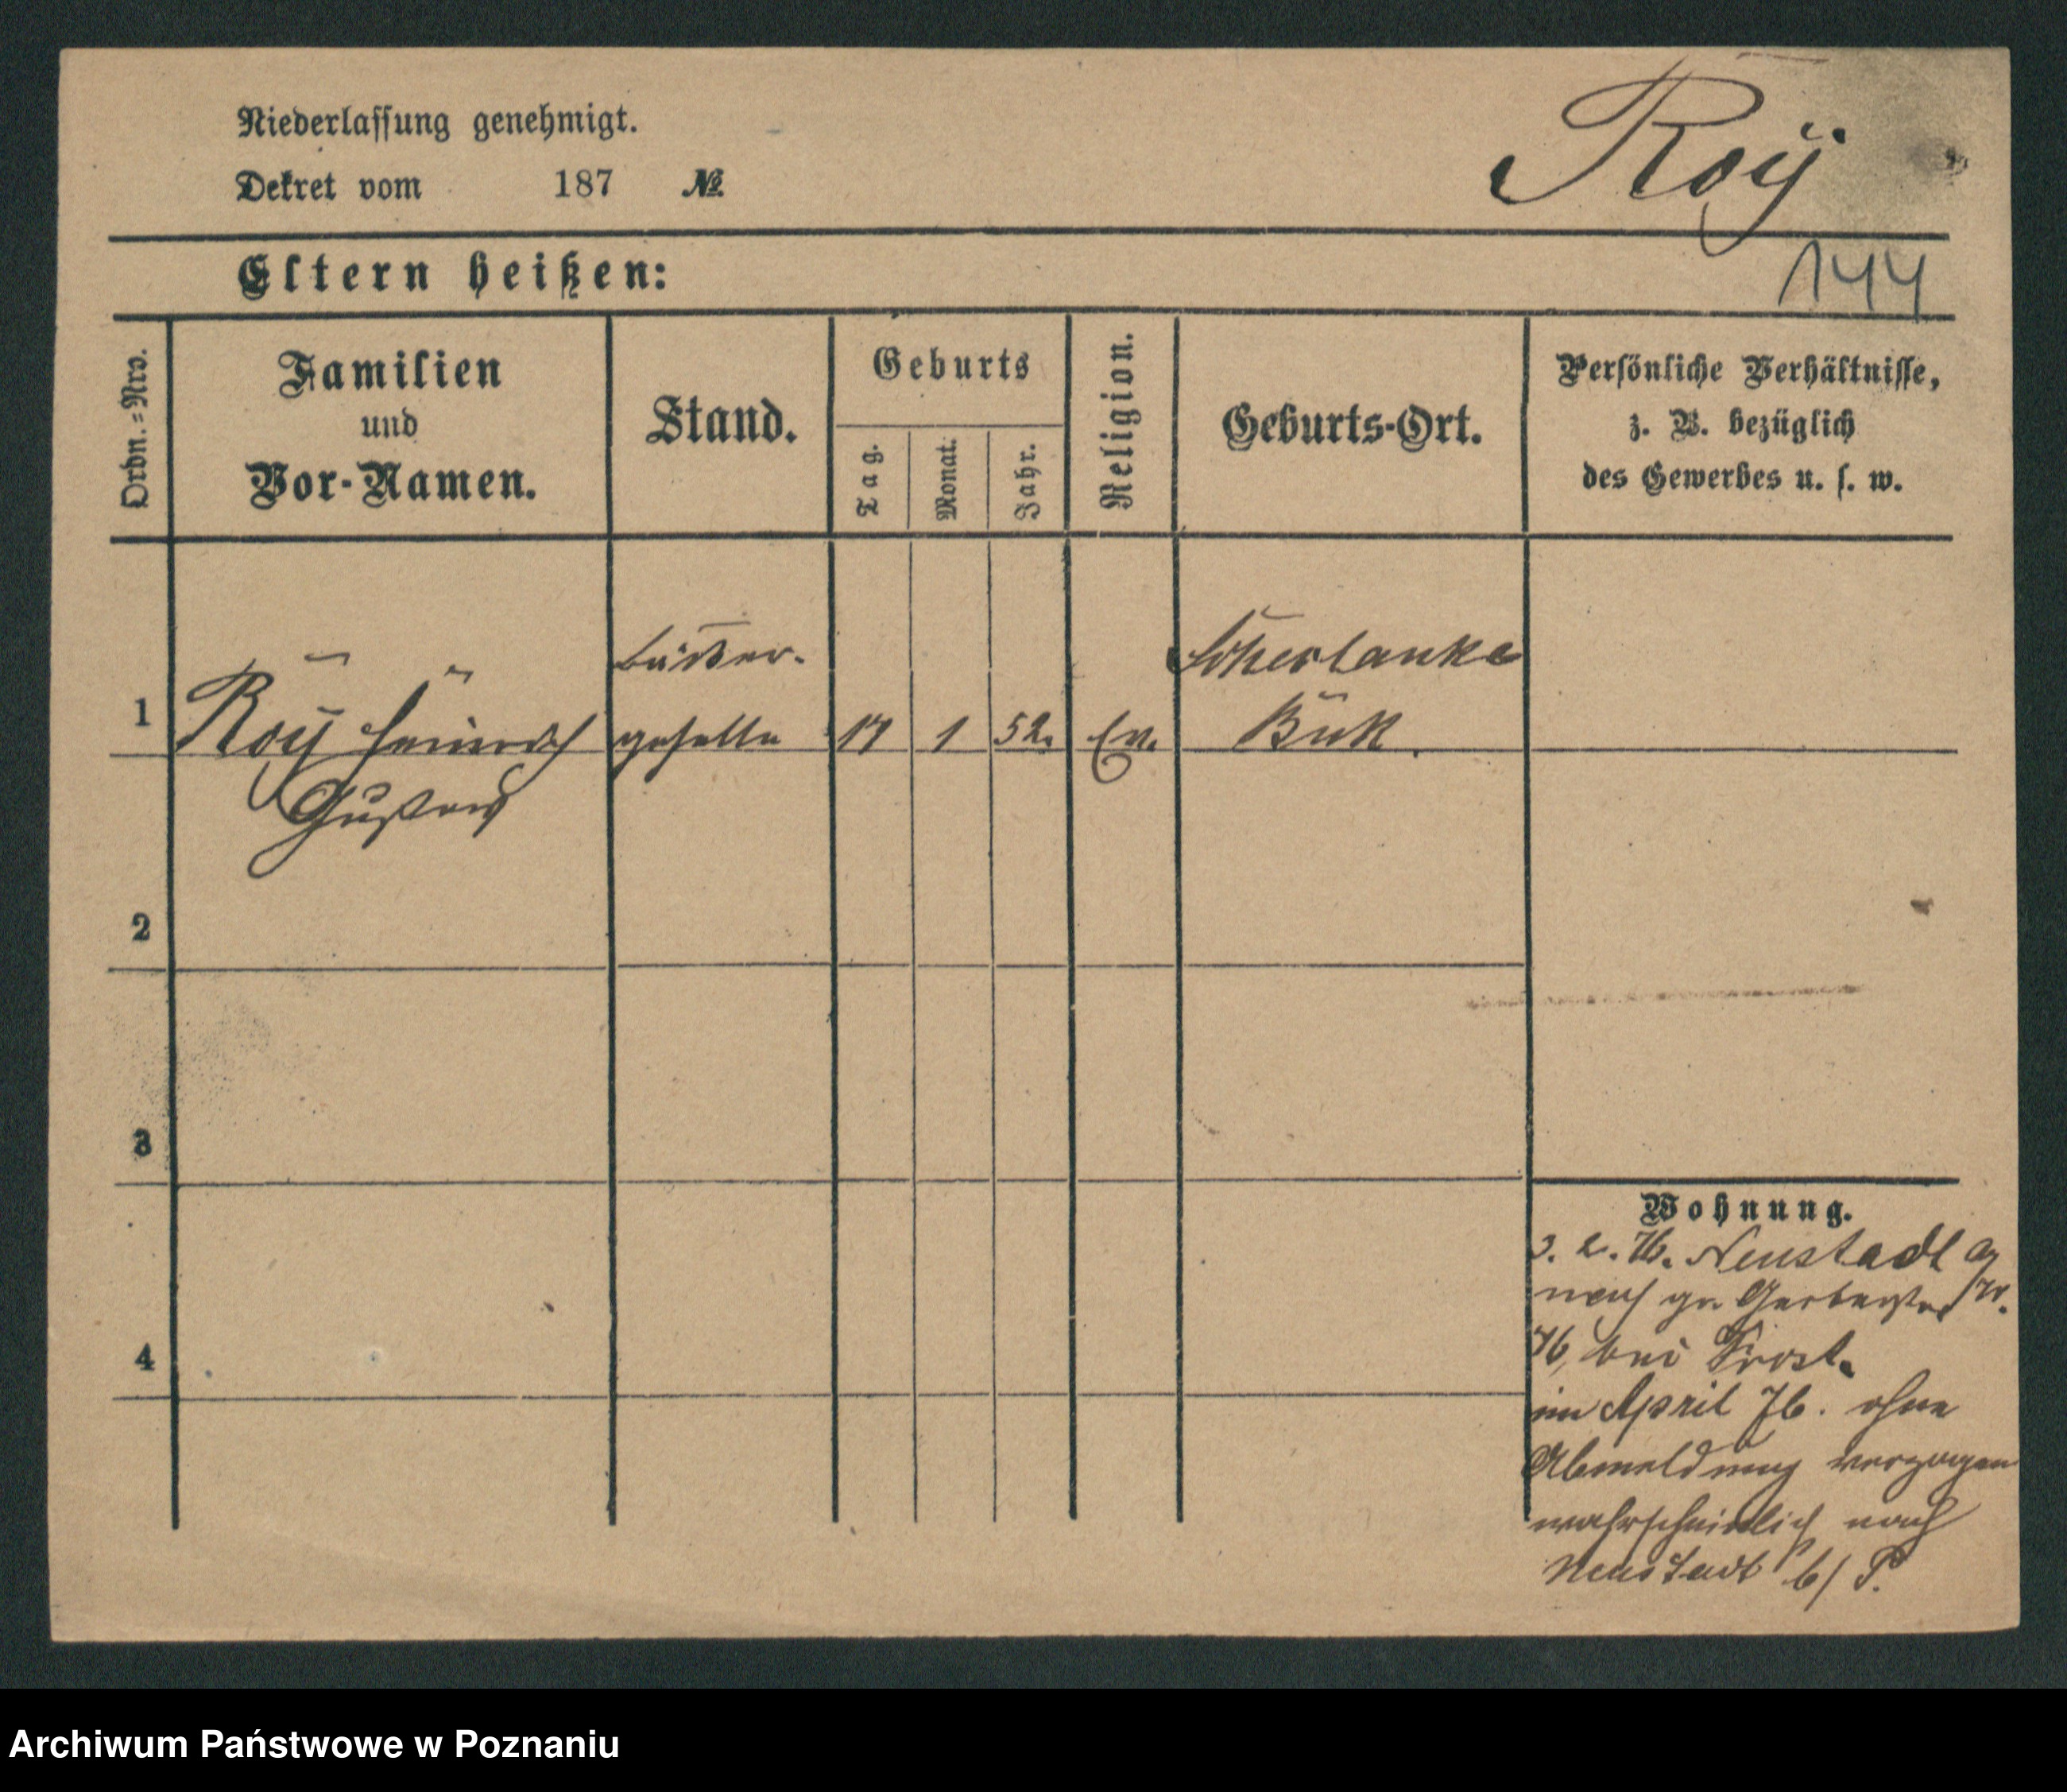 Niederlassung genehmigt.
Dekret vom 187 №
Roÿ
144
Eltern heißen:
Ordn.=Nro.
Familien
und
Vor-Namen.
Stand.
Geburts
Tag.
Monat.
Jahr.
Religion.
Geburts-Ort.
Persönliche Verhältnisse,
z. B. bezüglich
des Gewerbes u. s. w.
1
Roÿ Heinrich
Gustav
geselle
1
52.
Ev.
Buk.
2
3
4
Wohnung.
3. 2. 76. Neustadt a/W.
nach gr. Gerberstr
bei Frost.
im April 76. ohne
Abmeldung verzogen
wahrscheinlich nach
Neustadt b/P.
Archiwum Państwowe w Poznaniu